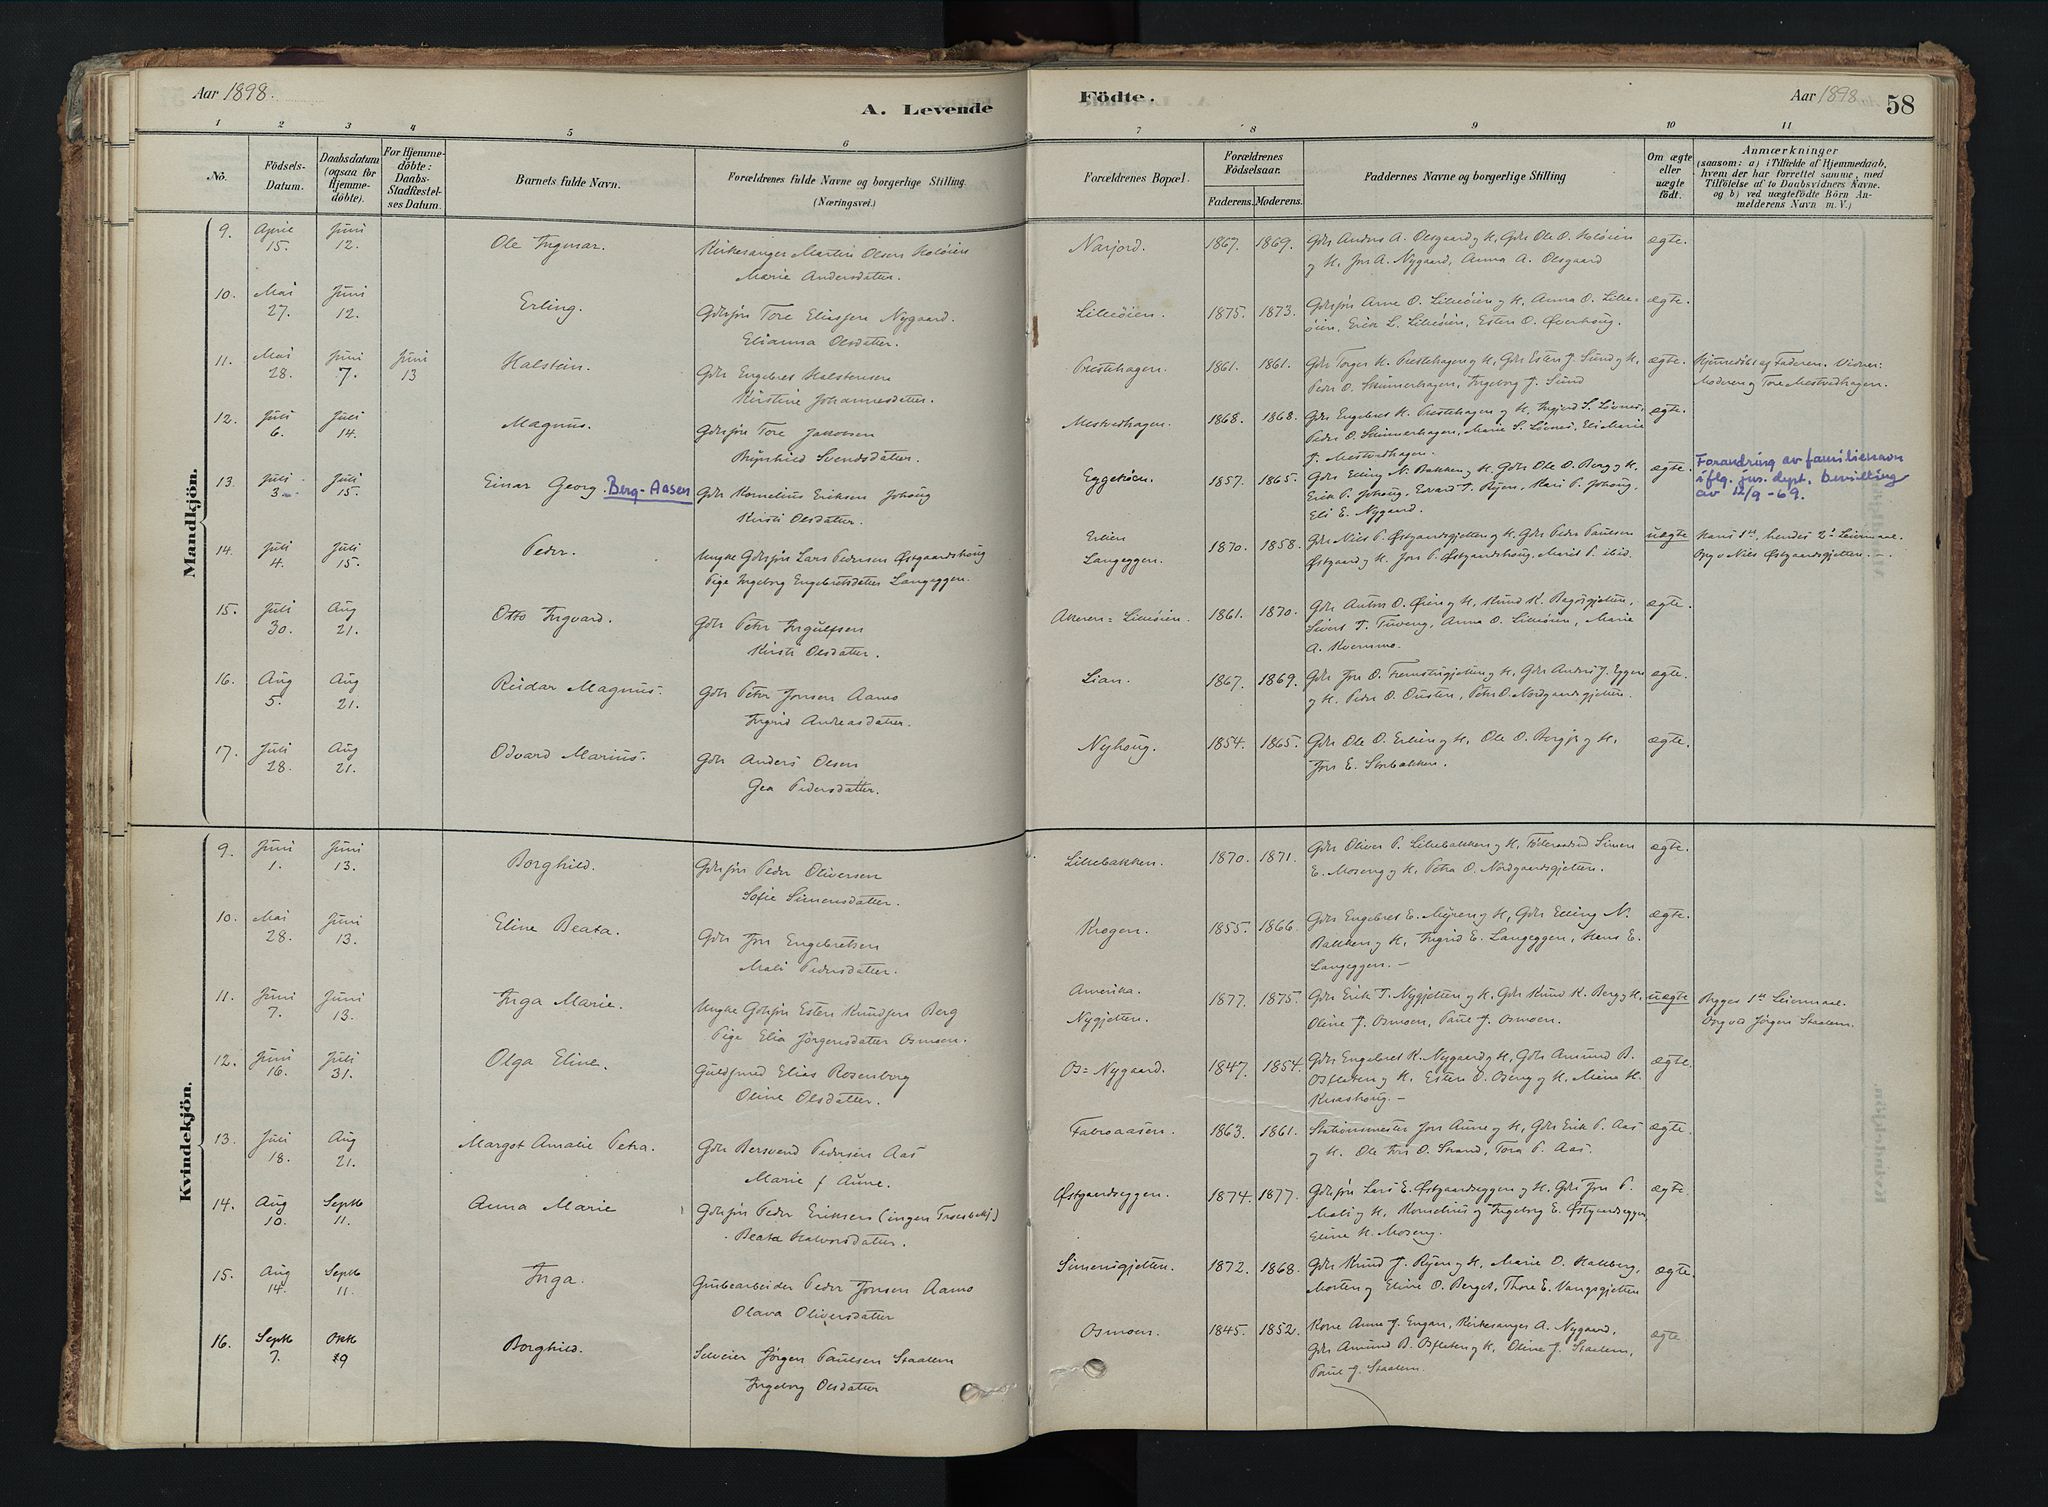 Aar 1898.
A. Levende
Födte.
Aar 1898
58
1 2 3 4 5 6 7 8 9 10 11
No.
Födsels-
Datum.
Daabsdatum
(ogsaa for
Hjemme-
döbte).
For Hjemme-
döbte:
Daabs-
Stadfæstel-
ses Datum.
Barnets fulde Navn.
Forældrenes fulde Navne og borgerlige Stilling
(Næringsvei.)
Forældrenes Bopæl.
Forældrenes
Födselsaar.
Faderens. Moderens.
Faddernes Navne og borgerlige Stilling
Om ægte
eller
uægte
födt.
Anmærkninger
(saasom: a) i Tilfælde af Hjemmedaab,
hvem der har forrettet samme, med
Tilföielse af to Daabsvidners Navne.
og b) ved uægtefödte Börn An-
melderens Navn m. V.)
Mandkjön.
9. April 15. Juni 12. Ole Ingmar. Kirkesanger Martin Olsen Holøien
Marie Andersdatter.
Narjord. 1867. 1869. Gdr Anders A. Olsgaard y H, Gdr Ole O. Holøien
y H, Jon A. Nygaard, Anna A. Olsgaard
ægte.
10. Mai 27. Juni 12. Erling. Gdrsøn Tore Eliassen Nygaard.
Elianna Olsdatter.
Lilleøien. 1875. 1873. Gdrsøn Arne O. Lilleøien y H, Anna O. Lille-
øien, Erik L. Lilleøien, Esten O. Øverhoug.
ægte.
11. Mai 28. Juni 7. Juni 13 Halstein. Gdr Engebret Halstensen
Kirstine Johannesdatter.
Prestehagen. 1861. 1861. Gdr Torger H. Prestehagen y H, Gdr Esten J. Sund y H,
Peder O. Skinnerhagen, Ingeborg J. Sund
ægte. Hjemmedøbt af Faderen. Vidner:
Moderen og Tore Mestvedhagen.
12. Juli 6. Juli 14. Magnus. Gdrsøn Tore Jakobsen
Brynhild Svendsdatter.
Mestvedhagen. 1868. 1868. Gdr Engebret H. Prestehagen y H, Ingeborg S. Løvnes,
Peder O. Skinnerhagen, Marie S. Løvnes, Eli Marie
J. Mestvedhagen.
ægte.
13. Juli 3 Juli 15. Einar Georg. Berg-Aasen Gdr Kornelius Eriksen Johoug
Kirsti Olsdatter.
Eggekøien. 1857. 1865. Gdr Elling N. Bakken y H, Gdr Ole O. Berg y H,
Erik P. Johoug, Edvard J. Ryen, Kari P. Johoug,
Eli E. Nygaard.
ægte. Forandring av familienavn
iflg. jus. dept. bevilling
av 12/9-69.
14. Juli 4. Juli 15. Peder. Ungke Gdrsøn Lars Pedersen Østgaardshoug
Pige Ingeborg Engebretsdatter Langeggen.
Erlien
Langeggen. 1870. 1858. Gdr Niels P. Østgaardsgjetten y H, Gdr Peder Paulsen
Østgaard y H, Jon P. Østgaardshoug, Marit P. ibid.
uægte Hans 1st, hendes 2d Leiermaal.
Opg v Niels Østgaardsgjetten.
15. Juli 30. Aug 21. Otto Ingvard. Gdr Peter Ingulfsen
Kirsti Olsdatter.
Akeren=Lilleøien. 1861. 1870. Gdr Anton O. Øien y H, Knud K. Bagosgjetten,
Sivert T. Tuveng, Anna O. Lilleøien, Marie
A. Kvernmo.
ægte.
16. Aug 5. Aug 21. Reidar Magnus. Gdr Peter Jonsen Aamo
Ingrid Andreasdatter.
Lian. 1867. 1869. Gdr Jon O. Fremstsgjetten y H, Gdr Anders J. Eggen
y H, Peder O. Ousten, Peter O. Nordgaardsgjetten.
ægte.
17. Juli 28. Aug 21. Odvard Marius. Gdr Anders Olsen
Gea Pedersdatter.
Nyhoug. 1854. 1865. Gdr Ole O. Erlien y H, Ole O. Berg y H,
Jon E. Storbakken.
ægte.
Kvindekjön.
9. Juni 1. Juni 13. Borghild. Gdrsøn Peder Oliversen
Sofie Simensdatter.
Lillebakken. 1870. 1871. Gdr Oliver P. Lillebakken y H, Føderaadsmd Simen
E. Moseng y H, Petra O. Nordgaardsgjetten.
ægte.
10. Mai 28. Juni 13. Eline Beata. Gdr Jon Engebretsen
Mali Pedersdatter.
Krogen. 1855. 1866. Gdr Engebret E. Myren y H, Gdr Elling N.
Bakken y H, Ingrid E. Langeggen, Hans E.
Langeggen.
ægte.
11. Juni 7. Juni 13. Inga Marie. Ungke Gdrsøn Esten Knudsen Berg
Pige Elia Jørgensdatter Osmoen.
Amerika.
Nygjetten. 1877. 1875. Gdr Erik T. Nygjetten y H, Gdr Knud K. Berg y H,
Oline J. Osmoen, Paul J. Osmoen.
uægte Begges 1st Leiermaal.
Opg ved Jørgen Staalem.
12. Juni 16. Juli 31. Olga Eline. Guldsmed Elias Rosenborg
Oline Olsdatter.
Os=Nygaard. 1847. 1854. Gdr Engebret K. Nygaard y H, Gdr Amund B.
Osfloten y H, Esten O. Oseng y H, Mina H.
Kurashoug.
ægte.
13. Juli 18. Aug 21. Margot Amalie Petra. Gdr Bersvend Pedersen Aas
Marie f Aune.
Fabroaasen. 1863. 1861. Stationsmester Jon Aune y H, Gdr Erik P. Aas
y H, Ole Jon O. Strand, Tora P. Aas.
ægte.
14. Aug 10. Septb 11. Anna Marie Gdrsøn Peder Eriksen (ingen Troesbekj)
Beata Halvorsdatter.
Østgaardseggen. 1874. 1877. Gdrsøn Lars E. Østgaardseggen y H, Gdr Jon P.
Mali y H, Kornelius y Ingeborg E. Østgaardseggen,
Eline H. Moseng.
ægte.
15. Aug 14. Septb 11. Inga. Grubearbeider Peder Jonsen Aamo
Olava Oliversdatter
Simensgjetten. 1872. 1868. Gdr Knud J. Ryen y H, Marie O. Hallberg,
Morten y Eline O. Berget, Thore E. Vangsgjetten
ægte.
16. Septb 7. Oktb 9 Borghild. Selveier Jørgen Paulsen Staalem
Ingeborg Olsdatter
Osmoen. 1845. 1852. Kone Anne J. Engan, Kirkesanger A. Nygaard,
Gdr Amund B. Osfloten y H, Oline J. Staalem,
Paul J. Staalem.
ægte.